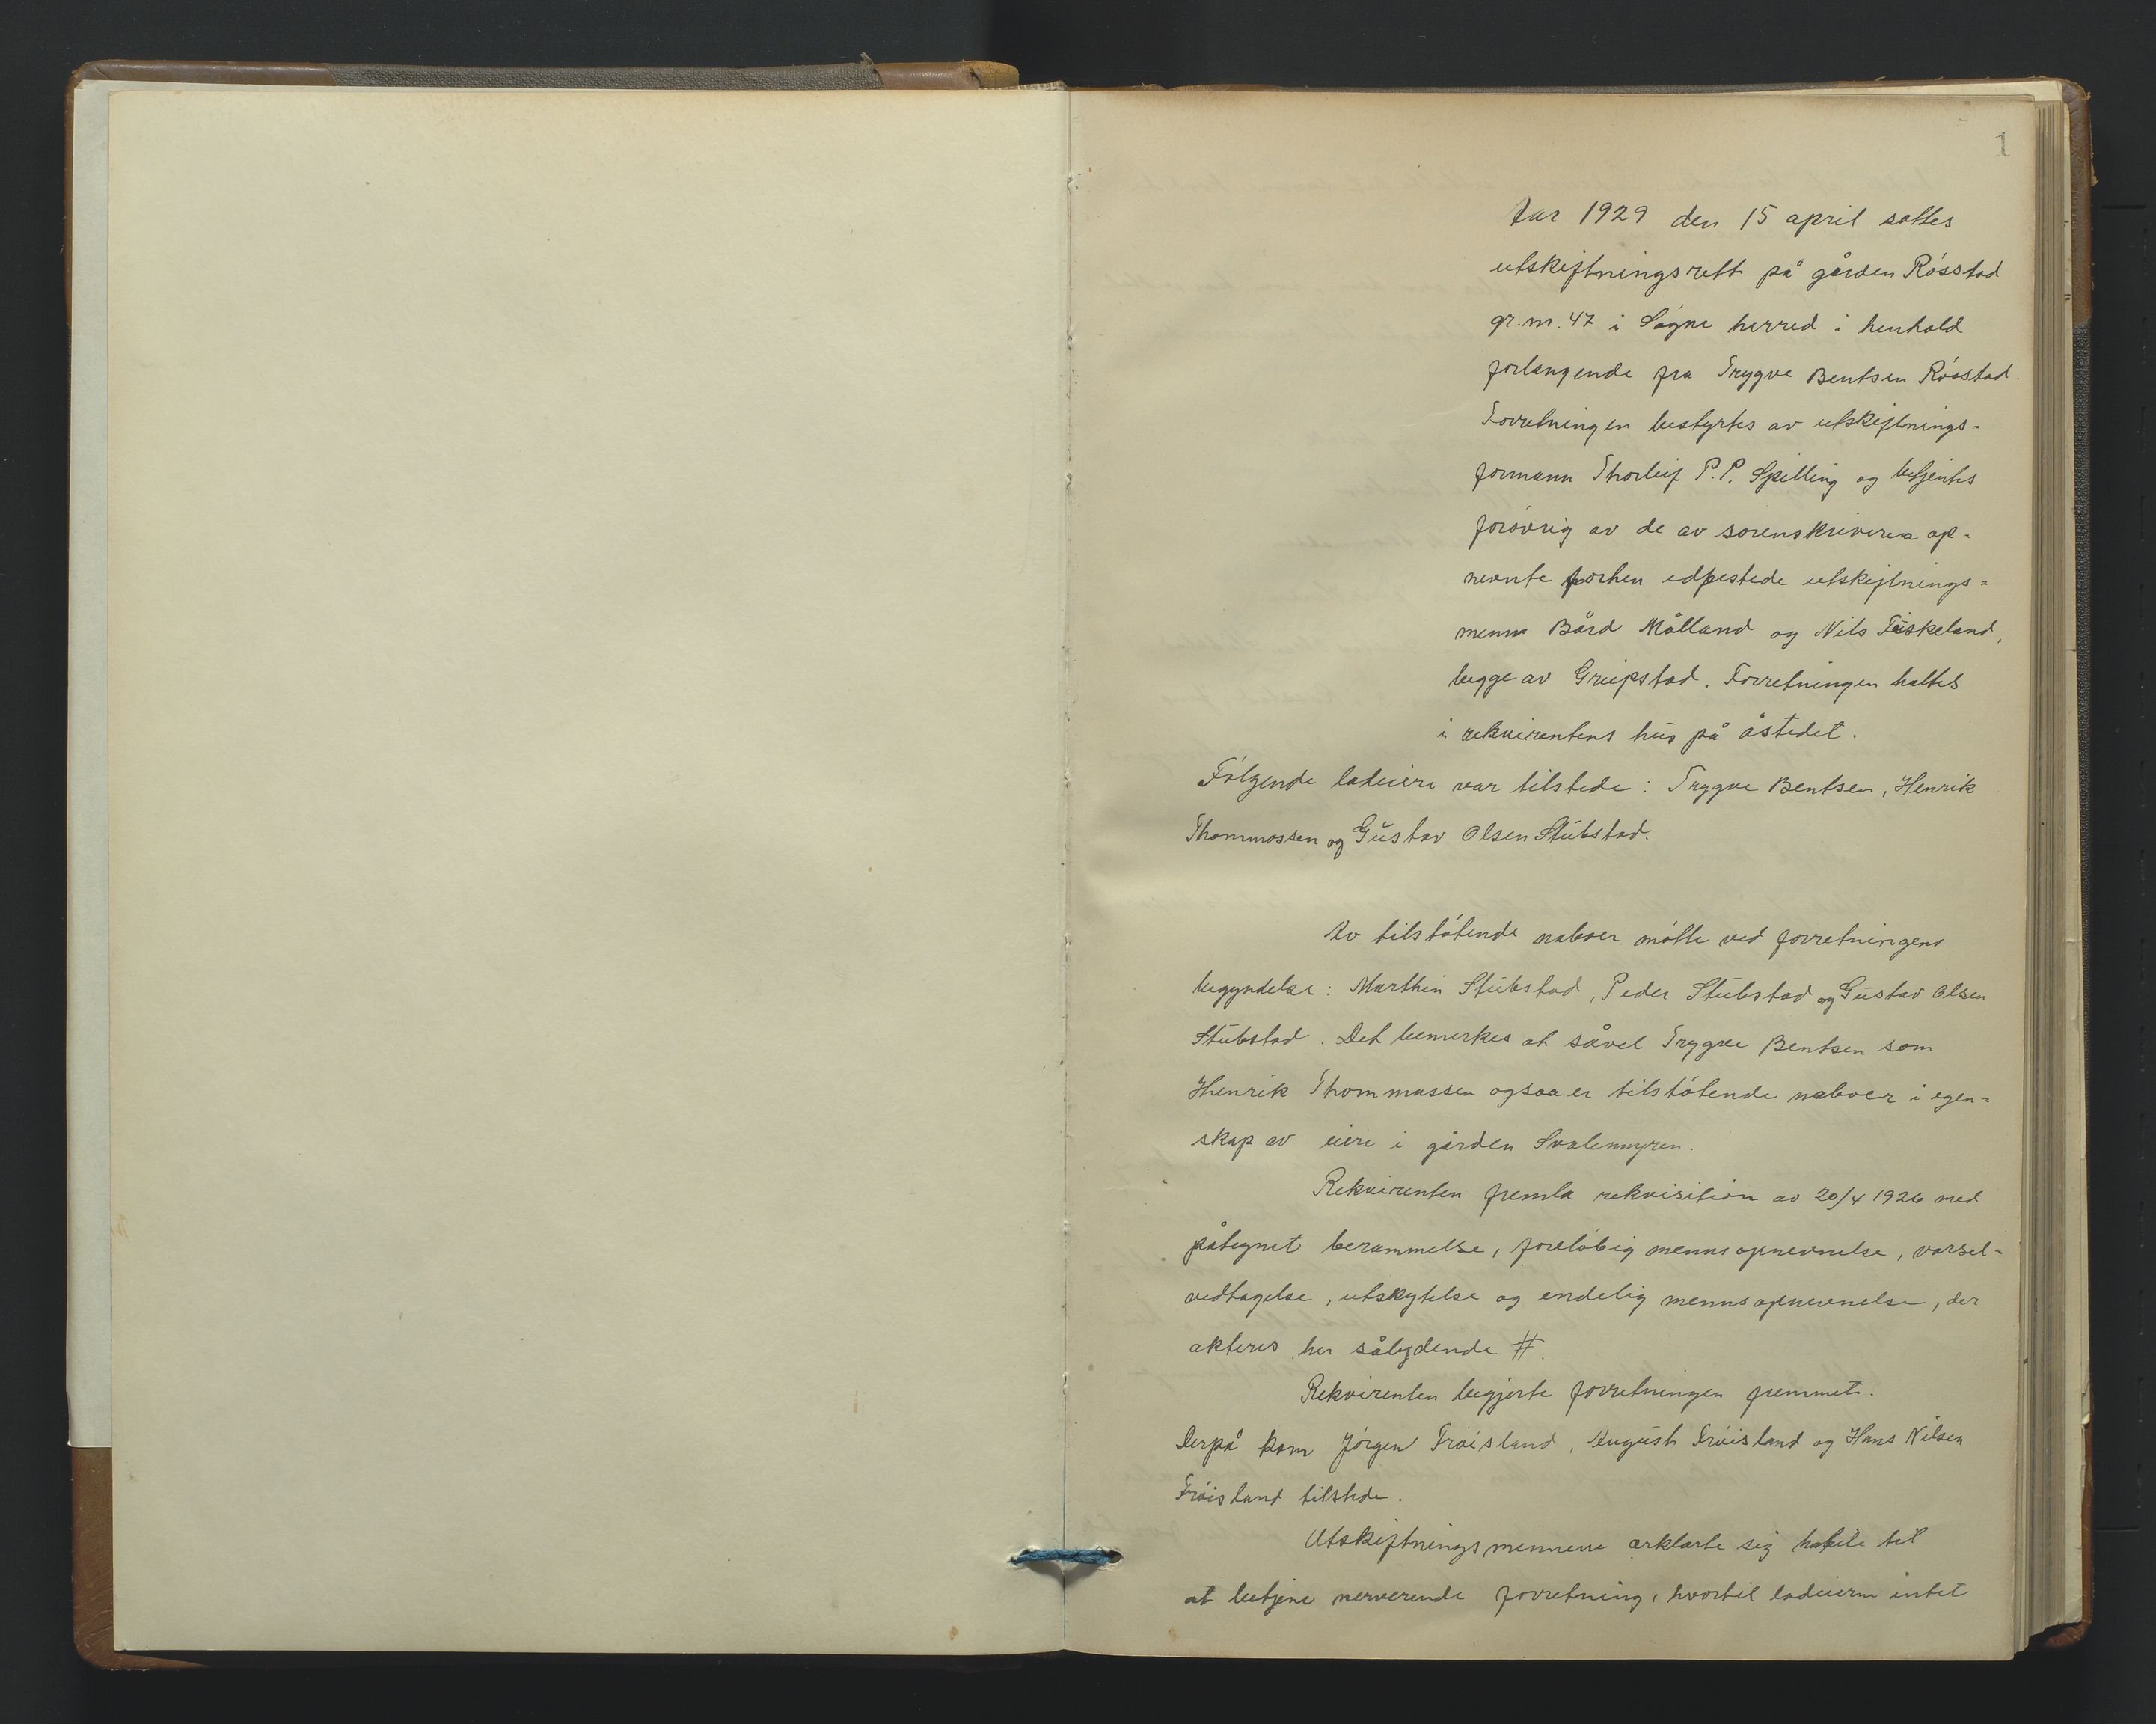 1
Aar 1929 den 15 april sattes
utskiftningsrett på gården Rósstad
gr.nr. 47 i Sógne herred i henhold
forlangende fra Trygve Bentsen Rósstad.
Forretningen bestyrtes av utskiftnings-
formann Thorleif P.P. Spilling og betjentes
foróvrig av de av sorenskriveren op-
nevnte forhen edfestede utskiftnings-
menn Bård Målland og Nils Fiskeland,
begge av Greipstad. Forretningen holtes
i rekvirentens hus på åstedet.
Fólgende lodeiere var tilstede: Trygve Bentsen, Henrik
Thommassen og Gustav Olsen Stubstad.
Av tilstótende naboer mótte ved forretningens
begyndelse: Marthin Stubstad, Peder Stubstad og Gustav Olsen
Stubstad. Det bemerkes at såvel Trygve Bentsen som
Henrik Thommassen ogsaa er tilstótende naboer i egen-
skap av eiere i gården Svalemyren.
Rekvirenten fremla rekvisition av 20/4 1926 med
påtegnet berammelse, foreløbig mennsopnevnelse, varsel-
vedtagelse, utskytelse og endelig mennsopnevnelse, der
akteres her sålydende #.
Rekvirenten begjerte forretningen fremmet.
Derpå kom Jórgen Tróisland, August Tróisland og Hans Nilsen
Tróisland tilstede.
Utskiftningsmennene erklærte sig habile til
at betjene nerverende forretning, hvortil lodeierne intet